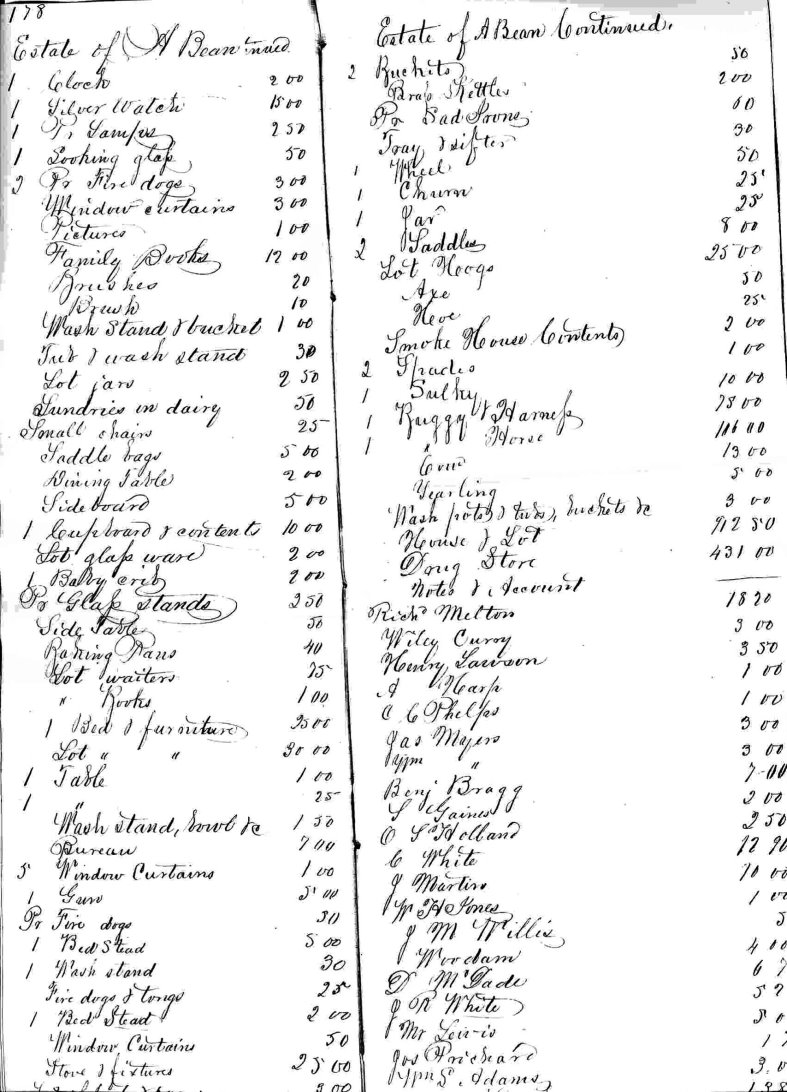 178
Estate of A Bean
1 Clock 2 00
1 Silver Watch 15 00
1 Pr Lamps 2 50
1 Looking glass 50
2 Pr Fire dogs 3 00
Window curtains 3 00
Pictures 1 00
Family Books 12 00
Brushes 20
Brush 10
Wash Stand & bucket 1 00
Tub & wash stand 30
Lot jars 2 50
Sundries in dairy 50
Small chairs 25
Saddle bags 5 00
Dining Table 2 00
Sideboard 5 00
1 Cupboard & contents 10 00
Lot glass ware 2 00
1 Baby crib 2 00
Pr Glass stands 2 50
Side Table 50
Baking Pans 40
Lot waiters 75
" Books 1 00
1 Bed & furniture 25 00
Lot " " 30 00
1 Table 1 00
1 " 25
Wash stand, bowl &c 1 50
Bureau 7 00
5 Window Curtains 1 00
1 Gun 5 00
Pr Fire dogs 30
1 Bed Stead 5 00
1 Wash stand 30
Fire dogs & tongs 25
1 Bed Stead 2 00
Window Curtains 50
Stove & fixtures 25 00
3 00
Estate of A Bean Continued.
2 Buckits 50
Brass Kettles 2 00
Pr Sad Irons 60
Tray & sifter 30
1 Wheel 50
1 Churn 25
1 Jar 25
2 Saddles 8 00
Lot Hoogs 25 00
Axe 50
Hoe 25
Smoke House Contents 2 00
2 Spades 1 00
1 Sulky 10 00
1 Buggy & Harness 75 00
1 " Horse
Cow 13 00
Yearling 5 00
Wash pots & tubs, buckets &c 3 00
House & Lot 912 50
Drug Store 431 00
Notes & Account
Rich Melton
Wiley Curry 3 00
Henry Lawson 3 50
A Harp 1 00
C C Phelps 1 00
Jas Mayers 3 00
Wm " 3 00
Benj Bragg 7 00
S Gaines 2 00
O S Holland 2 50
C White
J Martin
W H Jones
J M Willis
Woodam
D McDade
J R White
Mr Lewis
Jos Prichard
Wm S. Adams